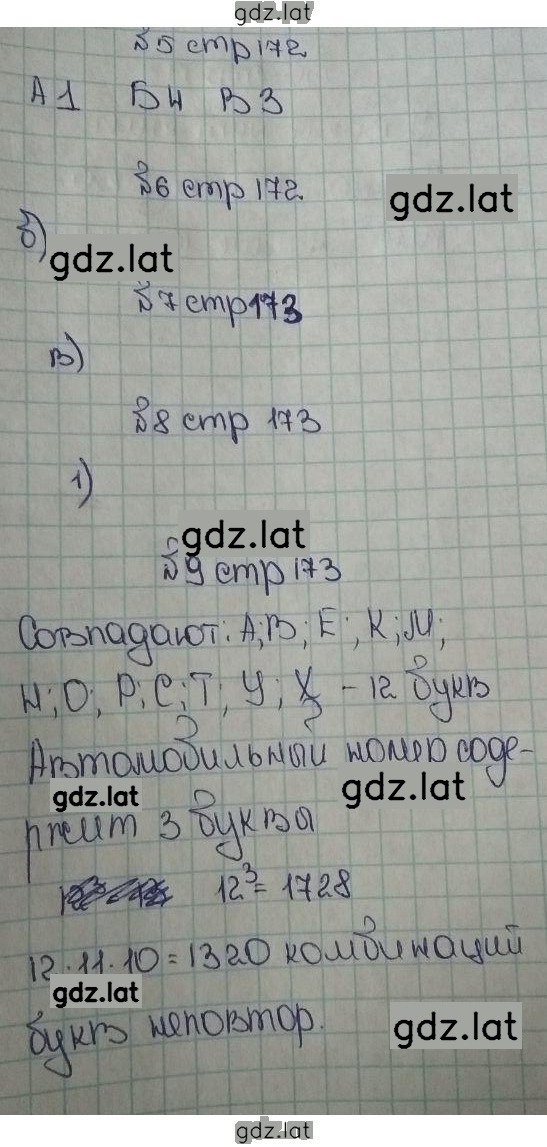 gdz.lat
№5 стр 172
А1 Б4 В3
№6 стр 172
gdz.lat
б)
gdz.lat
№7 стр 173
в)
№8 стр 173
1)
gdz.lat
№9 стр 173
Совпадают: А; В; Е; К; М;
Н; О; Р; С; Т; У; Х – 12 букв
Автомобильный номер соде-
gdz.lat
gdz.lat
ржит 3 буквы
12³ = 1728
12·11·10 = 1320 комбинаций
gdz.lat
букв неповтор.
gdz.lat
gdz.lat